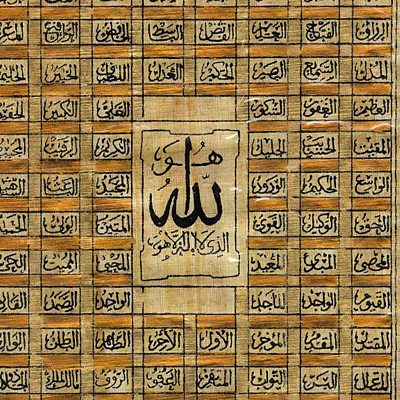 الرزاق الفتاح العليم القابض الباسط الخافض الرافع المعز
المذل السميع البصير الحكم العدل اللطيف الخبير الحليم
العظيم الغفور الشكور العلي الكبير الحفيظ
المقيت الحسيب الجليل الكريم الرقيب المجيب
هو
الله
الذي لا إله إلا هو
الواسع الحكيم الودود المجيد الباعث الشهيد
الحق الوكيل القوي المتين الولي الحميد
المحصي المبدئ المعيد المحيي المميت الحي
القيوم الواجد الماجد الواحد الصمد القادر
المقتدر المقدم المؤخر الأول الآخر الظاهر الباطن الوالي
المتعال البر التواب المنتقم العفو الرؤوف مالك الملك